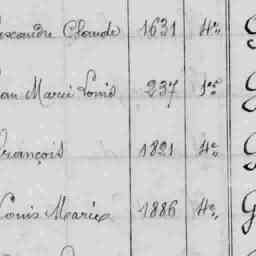 exandre Claude 1631 4e G
ean Marie Louis 237 1re G
rançois 1821 4e G
Louis Marie 1886 4e G